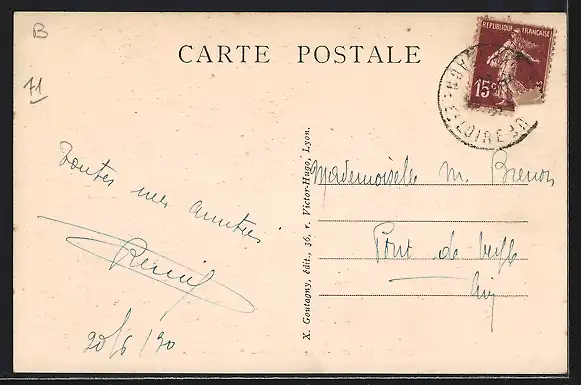 B
71
CARTE POSTALE
REPUBLIQUE FRANÇAISE
15c
Toutes mes amitiés
20/6/30
X. Goutagny, édit., 36, r. Victor-Hugo, Lyon.
Mademoiselle M.
Pont de Veyle
Ain